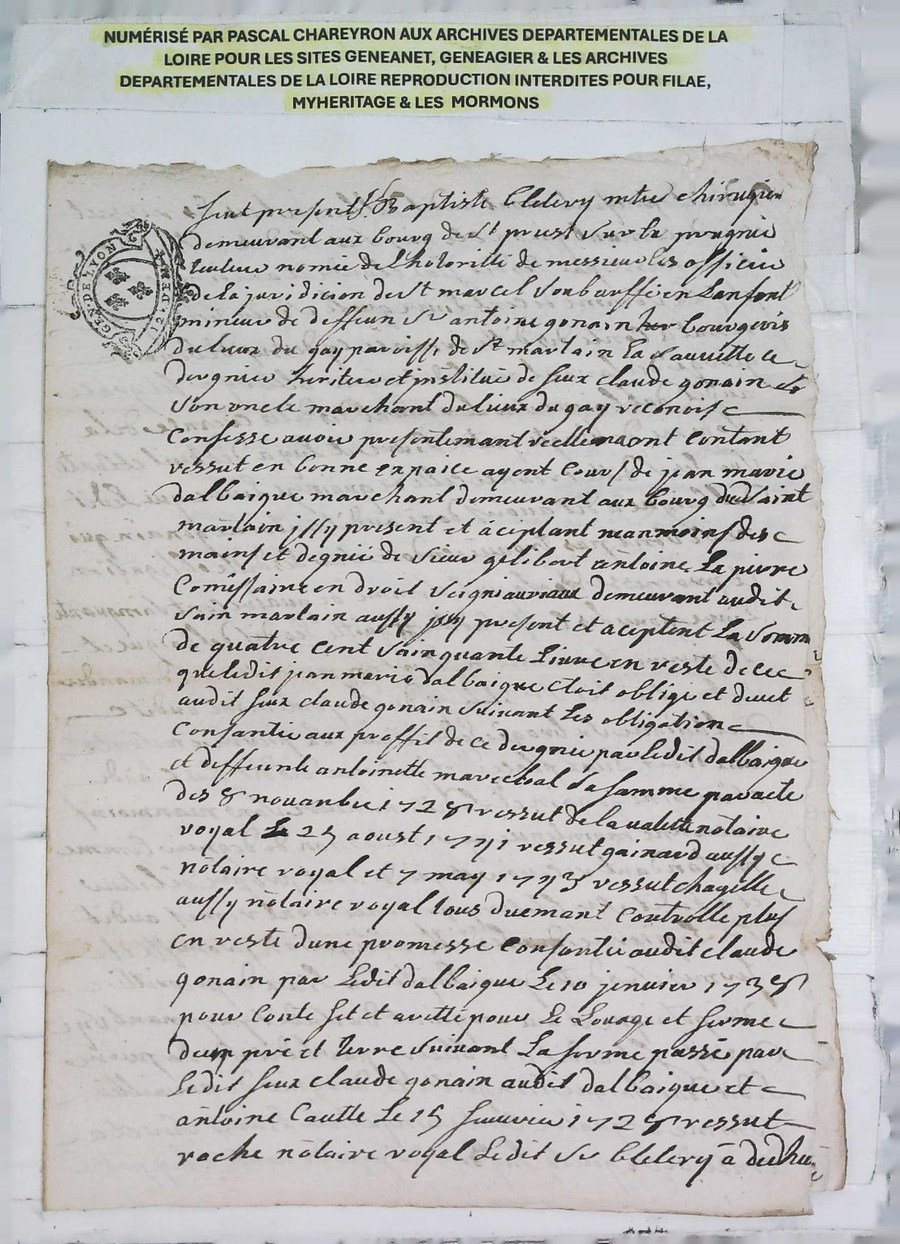 NUMÉRISÉ PAR PASCAL CHAREYRON AUX ARCHIVES DEPARTEMENTALES DE LA
LOIRE POUR LES SITES GENEANET, GENEAGIER & LES ARCHIVES
DEPARTEMENTALES DE LA LOIRE REPRODUCTION INTERDITES POUR FILAE,
MYHERITAGE & LES MORMONS
GEN. DE LYON
fut present Baptiste Clelery mtre chirugien
demeurant aux bourg de St priest sur la
nomée de Lhotoritté de messieurs les officie
De la juridicion de St marcel en Lanfont
mineur de deffeun Sr antoine gonain bourgeois
du lieux du gay paroisse de St martain La Sauvette ce
dergnier heritier et institué de feux claude gonain
son oncle marchant du lieux du gay reconoise
Confesse avoir presentemant reellemaont contant
ressut en bonne expaice ayent cours de jean marie
dalbaigue marchant demeurant aux bourg dud Saint
martain issy present et aceptant neanmoins des
mains et degnié de sieur gilibert antoine La pierre
Comissaire en droit seigniauriaux demeurant audit
Sain martain aussy issy present et aceptent La Somm
de quatre cent Sainquante Livre en reste de ce
que ledit jean marie dalbaigue etoit obligé et devet
audit feux claude gonain suivant les obligation
Consantie aux proffit de ce dergnié par ledit dalbaigue
et deffeunte antoinette marechal sa famme par acte
des 8 novanbre 1728 ressut de la valette notaire
royal Le 25 aoust 1741 ressut gainard aussy
notaire royal et 7 may 1743 ressut chazelle
aussy notaire royal tous duemant controlle plus
en reste dune promesse consantie audit claude
gonain par Ledit dalbaigue Le 10 jenvier 1738
pour conte fet et aretté pour Le Louage et ferme
deun pré et terre suivant La ferme passé par
Ledit feux claude gonain audit dalbaigue et
antoine Caulle Le 15 fevrier 1728 ressut
roche notaire royal Ledit Sr Clelery a